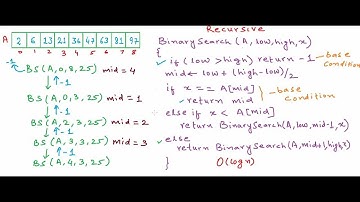 A 2 6 13 21 36 47 63 81 97
0 1 2 3 4 5 6 7 8
-1 BS(A,0,8,25) mid = 4
↓↑-1
BS(A,0,3,25) mid = 1
↓↑-1
BS(A,2,3,25) mid = 2
↓↑-1
BS(A,3,3,25) mid = 3
↓↑-1
BS(A,4,3,25)
Recursive
BinarySearch (A, low, high, x)
{
if (low > high) return -1 base condition
mid ← low + (high-low)/2
if x == A[mid]
return mid base condition
else if x < A[mid]
return BinarySearch(A, low, mid-1, x)
else
return BinarySearch(A, mid+1, high, x)
} O(log n)